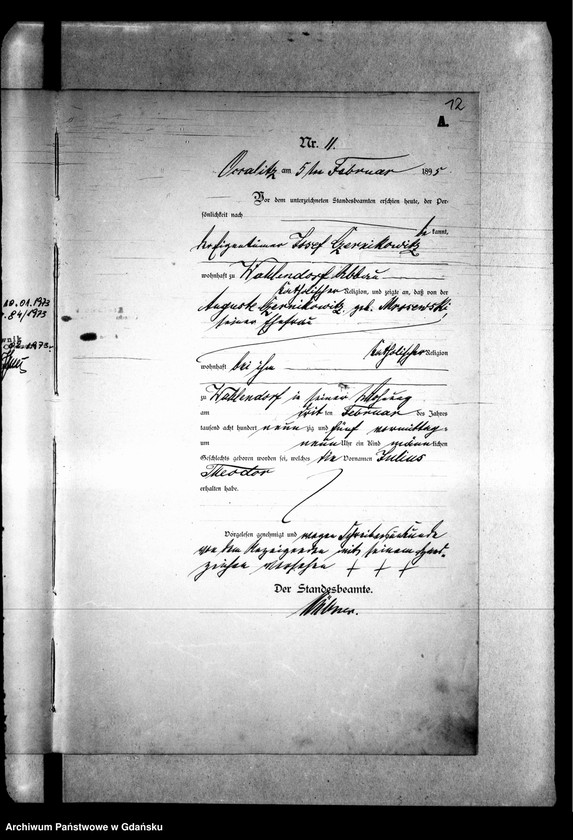 12
A.
Nr. 11.
Occalitz am 5ten Februar 1895.
Vor dem unterzeichneten Standesbeamten erschien heute, der Per-
sönlichkeit nach
be kannt,
der Eigentümer Josef Czernikowitz
wohnhaft zu Wahlendorf Abbau
katholischer Religion, und zeigte an, daß von der
August Czernikowitz, geb.
seiner Ehefrau
katholischer Religion
wohnhaft bei ihm
zu Wahlendorf in seiner Wohnung
am dritten Februar des Jahres
tausend acht hundert neunzig und fünf vormittag
um neun Uhr ein Kind männlichen
Geschlechts geboren worden sei, welches die Vornamen Julius
Theodor
erhalten habe.
Vorgelesen, genehmigt und wegen Schreibensunkunde
von dem Anzeigenden mit seinem Hand-
zeichen versehen + + +
Der Standesbeamte.
10.01.1973
84/1973
Archiwum Państwowe w Gdańsku